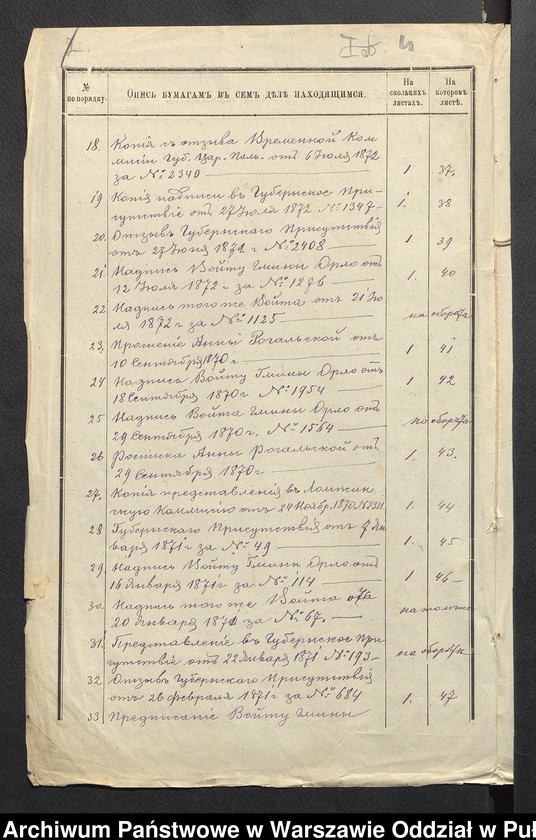 № по порядку.
Опись бумагамъ въ семъ дѣлѣ находящимся.
На сколькихъ листахъ.
На которомъ листѣ.
18. Копія съ отзыва Временной Ком
миссіи Губ. Цар. Поль. отъ 6 Іюля 1872
за № 2340 1. 37.
19 Копія надписи въ Губернское При-
сутствіе отъ 27 Іюля 1872 № 1347 1. 38
20. Отзывъ Губернскаго Присутствія
отъ 27 Іюня 1872 г № 2408 1 39
21 Надпись Войту Гмины Орло отъ
12 Іюля 1872 г за № 1276 1. 40
22 Надпись того же Войта отъ 21 Ію
ля 1872 г за № 1125 на оборотѣ
23. Прошеніе Анны Рогальской отъ
10 Сентября 1870 г 1 41
24 Надпись Войту Гмины Орло отъ
18 Сентября 1870 г № 1954 1 42
25 Надпись Войта Гмины Орло отъ
29 Сентября 1870 г. № 1564 на оборотѣ
26 Росписка Анны Рогальской отъ
29 Сентября 1870 г 1. 43.
27. Копія представленія въ Ломжин
скую Коммисію отъ 24 Ноябр. 1870 № 2311 1. 44
28 Губернскаго Присутствія отъ 7 Ян
варя 1871 г за № 49 1. 45
29. Надпись Войту Гмины Орло отъ
16 Января 1871 г за № 114 1 46
30. Надпись того же Войта отъ
20 Января 1871 за № 67. на томъ же
31. Представленіе въ Губернское При
сутствіе отъ 22 Января 1871 № 193 на оборотѣ
32 Отзывъ Губернскаго Присутствія
отъ 26 Февраля 1871 г за № 684 1. 47
33 Предписаніе Войту Гмины
Archiwum Państwowe w Warszawie Oddział w Puł